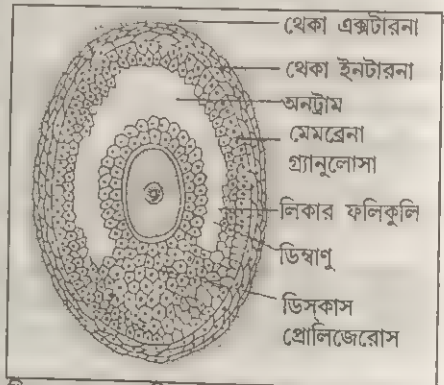 থেকা এক্সটারনা
থেকা ইনটারনা
অনট্রাম
মেমব্রেনা
গ্র্যানুলোসা
লিকার ফলিকুলি
ডিম্বাণু
ডিস্কাস
প্রোলিজেরোস